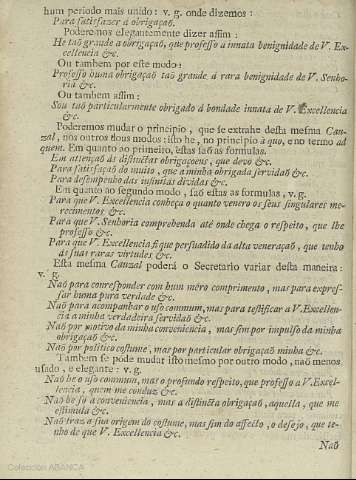 hum periodo mais unido: v. g. onde dizemos:
Para satisfazer á obrigaçaõ.
Poderemos elegantemente dizer assim:
He taõ grande a obrigaçaõ, que professo a innata benignidade de V. Ex-
cellencia &c.
Ou tambem por este modo:
Professo huma obrigaçaõ taõ grande á rara benignidade de V. Senho-
ria &c.
Ou tambem assim:
Sou taõ particularmente obrigado á bondade innata de V. Excellencia
&c.
Poderemos mudar o principio, que se extrahe desta mesma Can-
zal, nos outros dous modos: isto he, no principio a quo, e no termo ad
quem. Em quanto ao primeiro, estas saõ as formulas.
Em attençaõ ás distinctas obrigaçoens, que devo &c.
Para satisfaçaõ do muito, que a minha obrigada servidaõ &c.
Para desempenho das infinitas dividas &c.
Em quanto ao segundo modo, saõ estas as formulas, v. g.
Para que V. Excellencia conheça o quanto venero os seus singulares me-
recimentos &c.
Para que V. Senhoria comprehenda até onde chega o respeito, que lhe
professo &c.
Para que V. Excellencia fique persuadido da alta veneraçaõ, que tenho
ás suas raras virtudes &c.
Esta mesma Canzal poderá o Secretario variar desta maneira:
v. g.
Naõ para corresponder com hum méro comprimento, mas para expres-
sar huma pura verdade &c.
Naõ para acompanhar o uso commum, mas para testificar a V. Excellen-
cia a minha verdadeira servidaõ &c.
Naõ por motivo da minha conveniencia, mas sim por impulso da minha
obrigaçaõ &c.
Naõ por politico costume, mas por particular obrigaçaõ minha &c.
Tambem se póde mudar isto mesmo por outro modo, naõ menos
usado, e elegante: v. g.
Naõ he o uso commum, mas o profundo respeito, que professo a V. Excel-
lencia, quem me conduz &c.
Naõ he só a conveniencia, mas a distincta obrigaçaõ, aquella, que me
estimula &c.
Naõ traz a sua origem do costume, mas sim do affecto, o desejo, que te-
nho de que V. Excellencia &c.
Naõ
Colección ABANCA